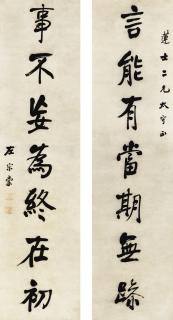 蓮士二兄大令正
言能有當期無跡
事不妄為終在初
左宗棠